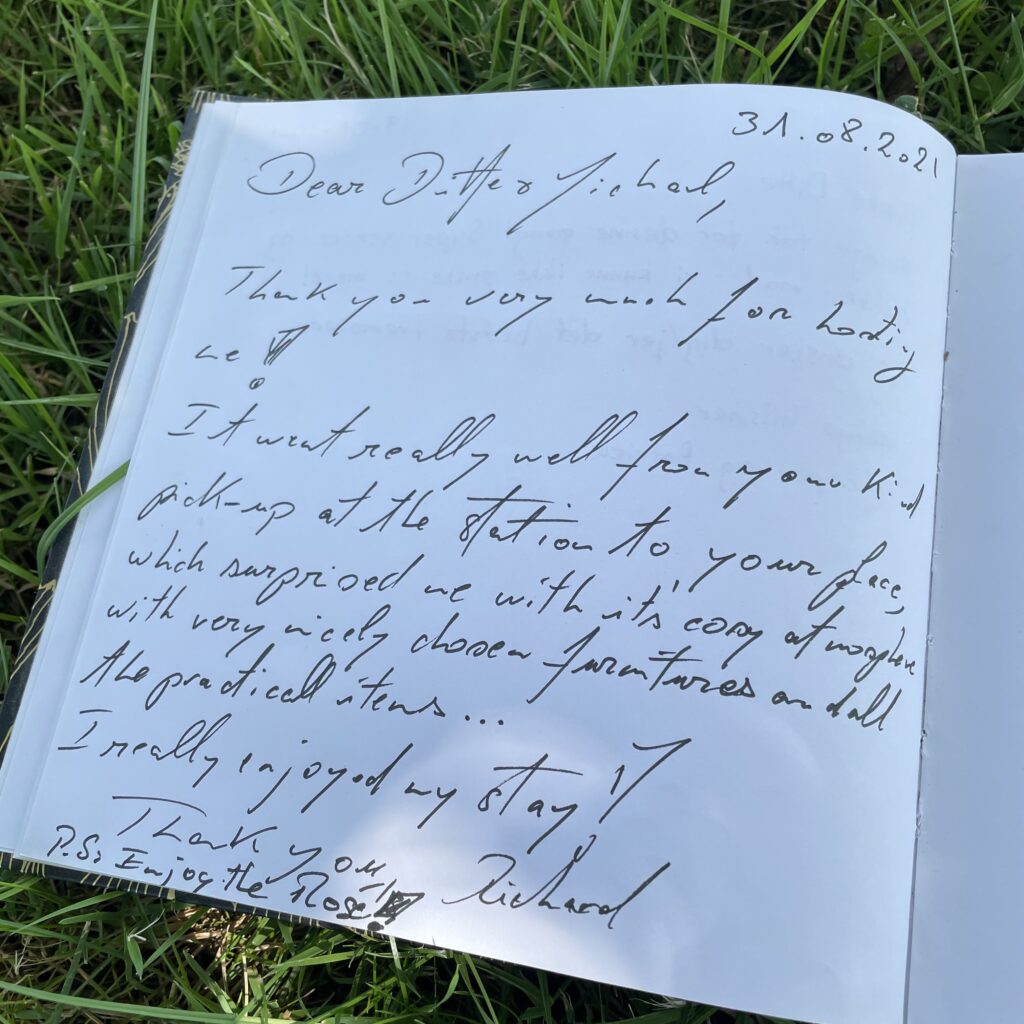 31.08.2021
Dear Ditte & Michael,
Thank you very much for hosting
me!
It went really well from your kind
pick-up at the station to your place,
which surprised me with it's cosy atmosphere
with very nicely chosen furnitures and all
the practicall items...
I really enjoyed my stay!
Thank you
Richard
P.S. Enjoy the Rosé!